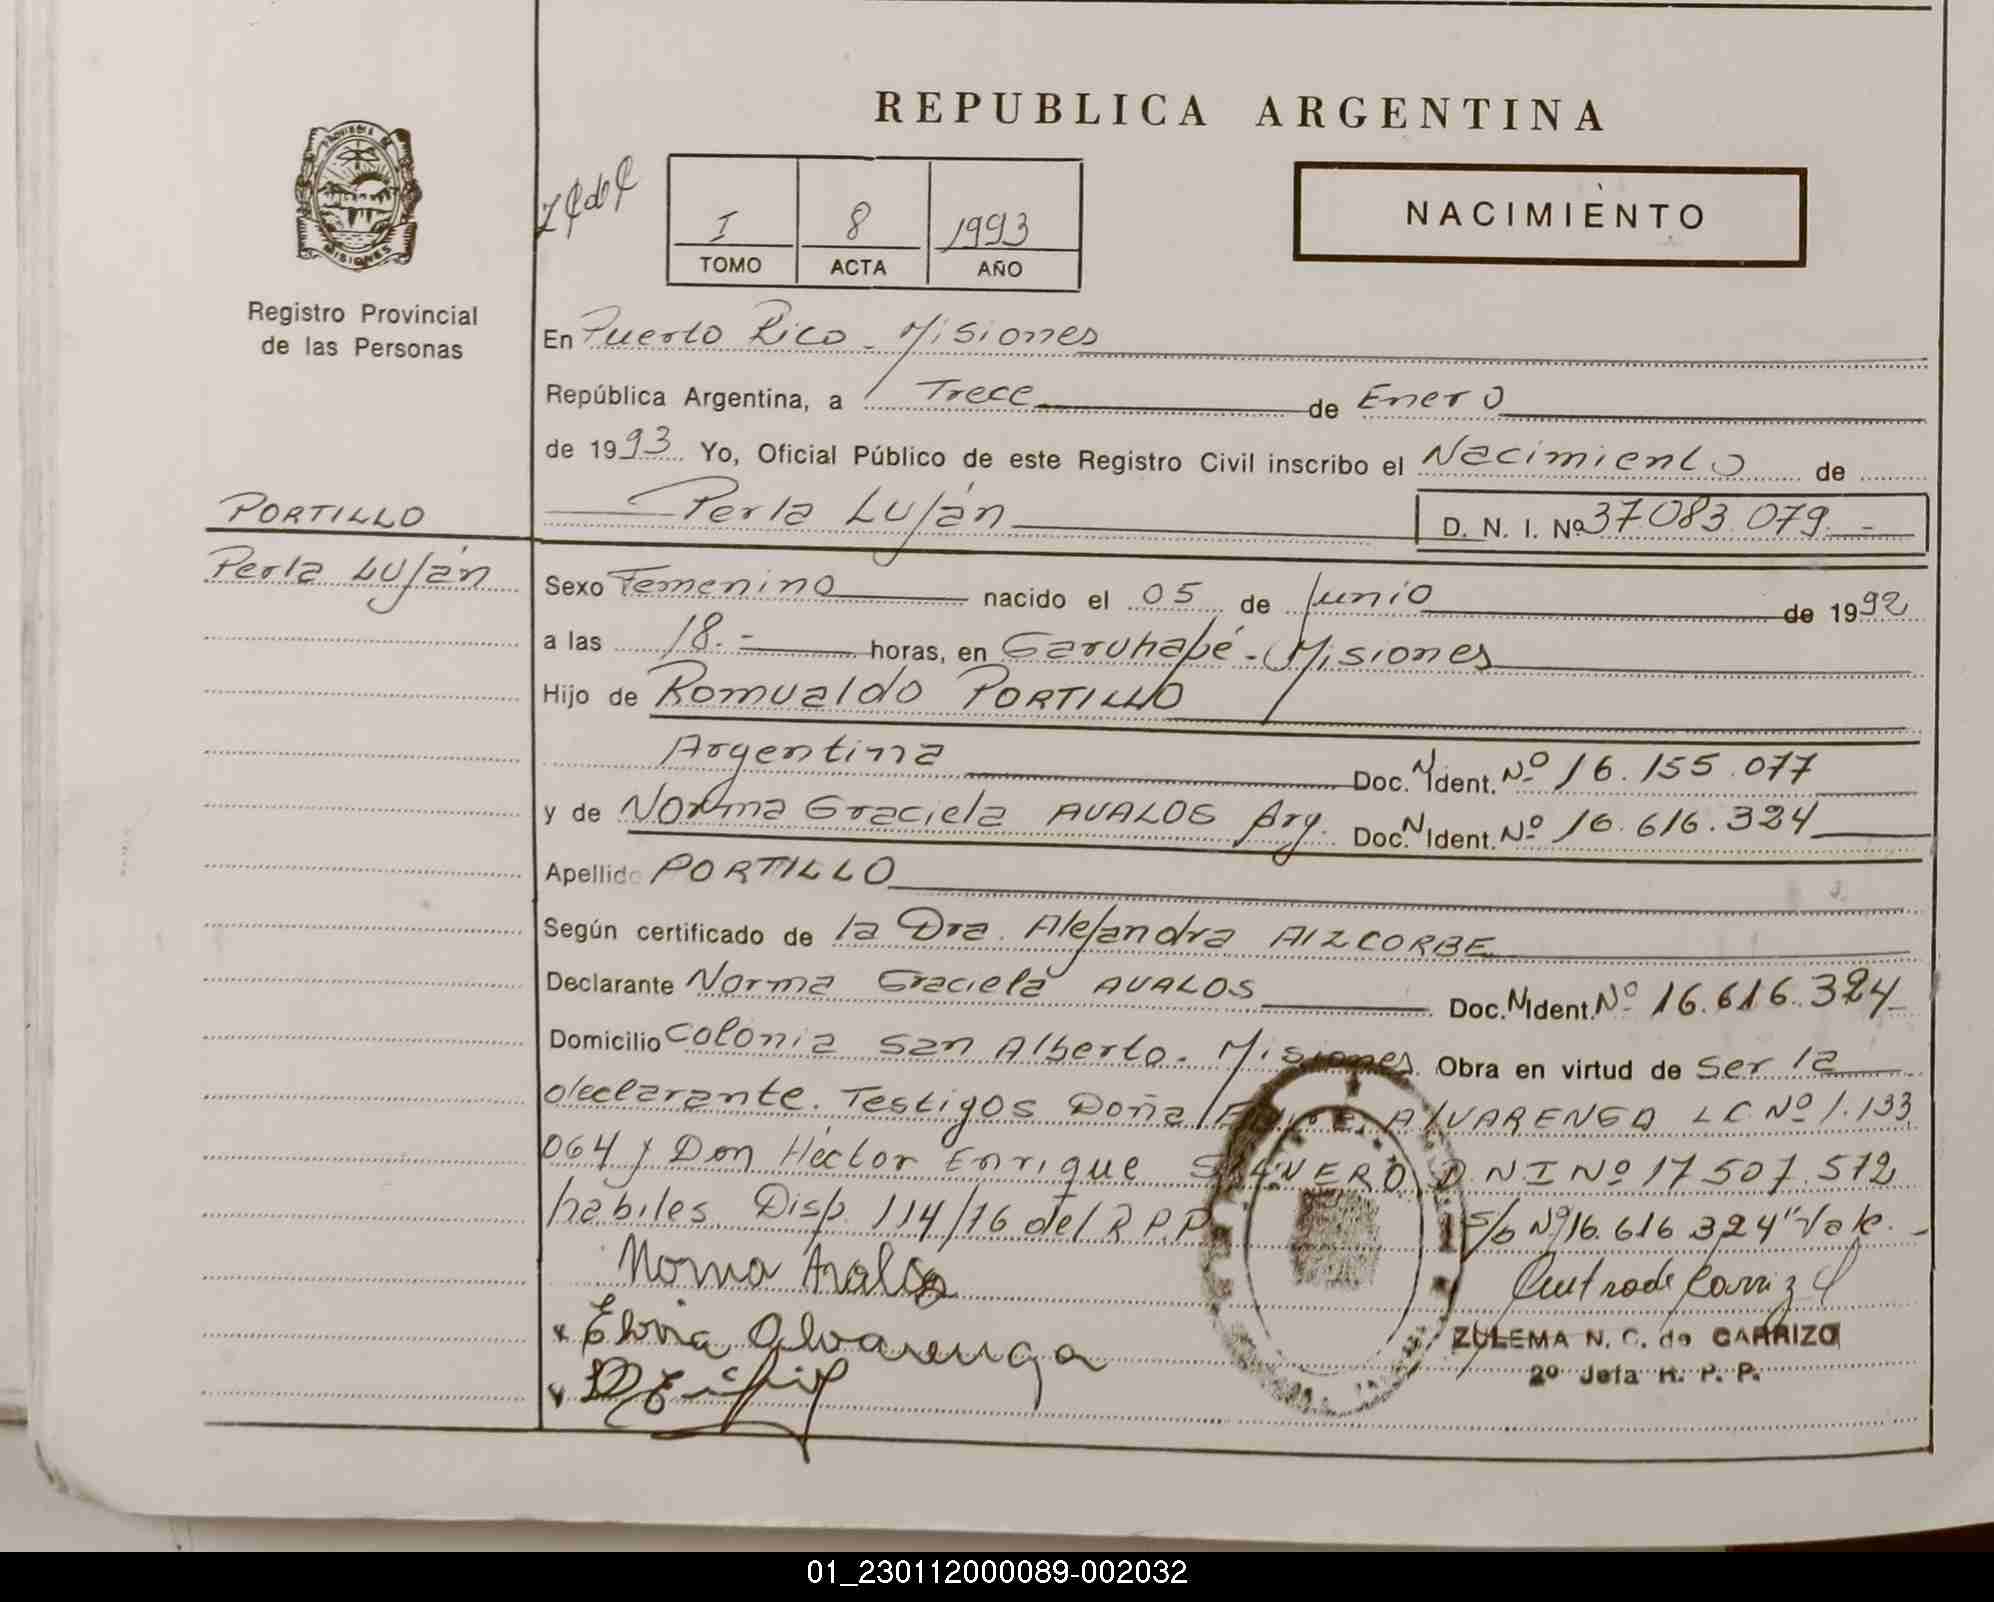 REPUBLICA ARGENTINA
PROVINCIA DE
MISIONES
Registro Provincial
de las Personas
I 8 1993
TOMO ACTA AÑO
NACIMIENTO
En Puerto Rico - Misiones
República Argentina, a Trece de Enero
de 1993 Yo, Oficial Público de este Registro Civil inscribo el Nacimiento de
PORTILLO
Perla Luján
Perla Luján D. N. I. Nº 37.083.079.-
Sexo Femenino nacido el 05 de Junio de 1992
a las 18.- horas, en Garuhapé - Misiones
Hijo de Romualdo PORTILLO
Argentina Doc. N Ident. Nº 16.155.077
y de Norma Graciela AVALOS Arg. Doc. N Ident. Nº 16.616.324
Apellido PORTILLO
Según certificado de la Dra. Alejandra AIZCORBE
Declarante Norma Graciela AVALOS Doc. N Ident. Nº 16.616.324
Domicilio Colonia San Alberto - Misiones Obra en virtud de ser la
declarante. Testigos Doña ALVARENGA LC. Nº 1.133.
064 y Don Héctor Enrique D N I Nº 17.507.572
habiles. Disp. 114/76 del R.P.P. S/b Nº 16.616.324 "Vale. -
Norma Avalos
x Elvira Alvarenga
x
ZULEMA N. C. de CARRIZO
2º Jefa R. P. P.
01_230112000089-002032